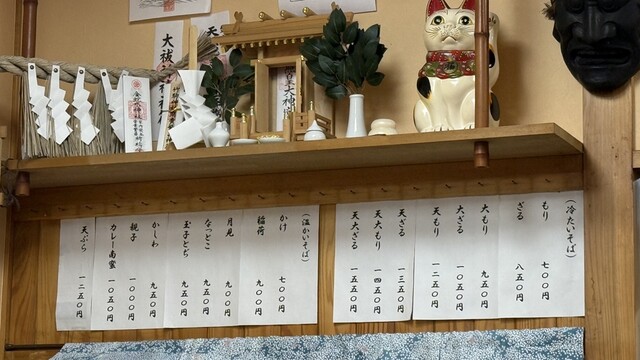 大祓
大神宮
（冷たいそば）
もり 七〇〇円
ざる 八五〇円
大もり 九五〇円
大ざる 一〇五〇円
天もり 一二五〇円
天ざる 一三五〇円
天大もり 一四五〇円
天大ざる 一五五〇円
（温かいそば）
かけ 七〇〇円
稲荷 九〇〇円
月見 九〇〇円
なっとこ 九五〇円
玉子とぢ 九五〇円
かしわ 九五〇円
親子 一〇〇〇円
カレー南蛮 一〇五〇円
天ぷら 一二五〇円